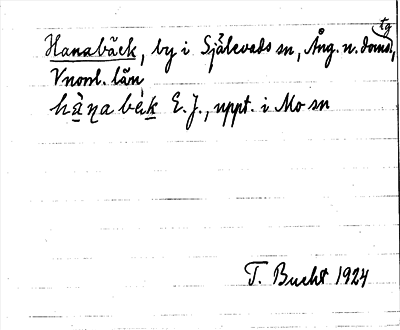 Hanabäck, by i Själevads sn, Ång. n. domstg,
Vnorrl. län,
hànabè̱k E. J., uppt. i Mo sn
T. Bucht 1924